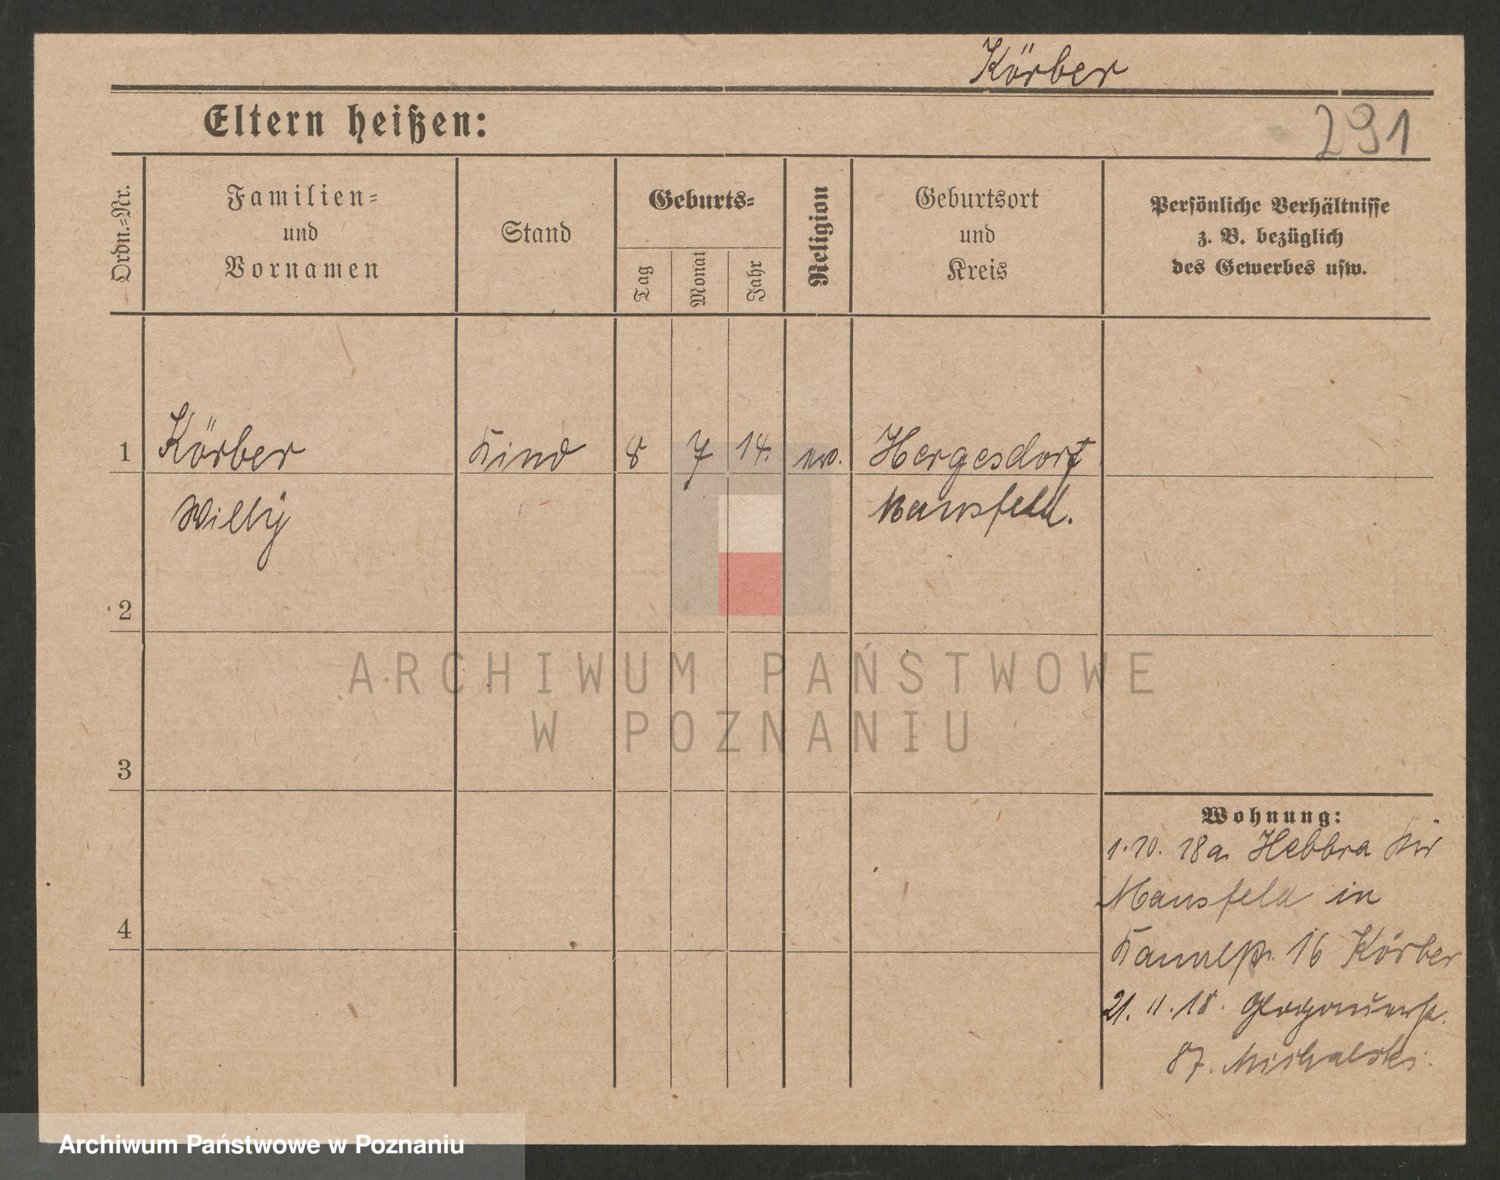 Körber
Eltern heißen:
291
Ordn.=Nr.
Familien=
und
Vornamen
Stand
Geburts=
Tag
Monat
Jahr
Religion
Geburtsort
und
Kreis
Persönliche Verhältnisse
z. B. bezüglich
des Gewerbes usw.
1
Körber
Kind
8
7
14.
ev.
Hergesdorf
Willy
Mansfeld.
2
ARCHIWUM PAŃSTWOWE
W POZNANIU
3
Wohnung:
1.10. 18 a. Hebbra Kr
Mansfeld in
Kanalstr. 16 Körber
4
21. 11. 18. Glogauerstr.
87. Michalski.
Archiwum Państwowe w Poznaniu